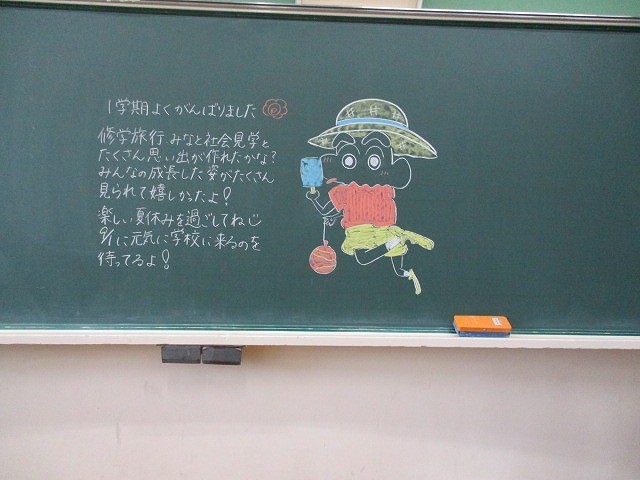 1学期よくがんばりました
修学旅行、みなと社会見学と
たくさん思い出が作れたかな?
みんなの成長した姿がたくさん
見られて嬉しかったよ!
楽しい夏休みを過ごしてねじ
9/1に元気に学校に来るのを
待ってるよ!